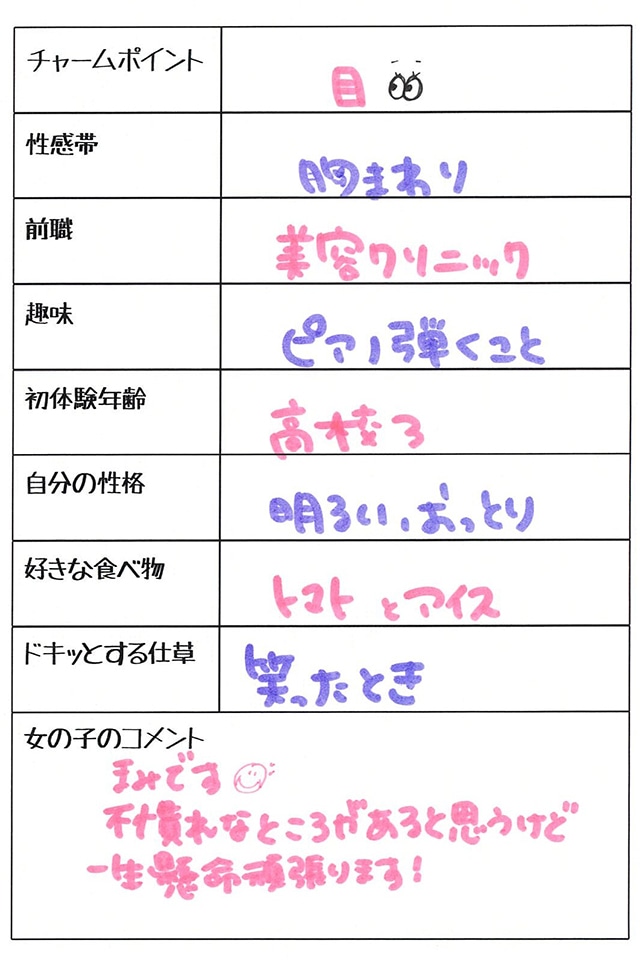 チャームポイント
目
性感帯
胸まわり
前職
美容クリニック
趣味
ピアノ弾くこと
初体験年齢
高校3
自分の性格
明るい、おっとり
好きな食べ物
トマトとアイス
ドキッとする仕草
笑ったとき
女の子のコメント
まみです
不慣れなところがあると思うけど
一生懸命頑張ります!